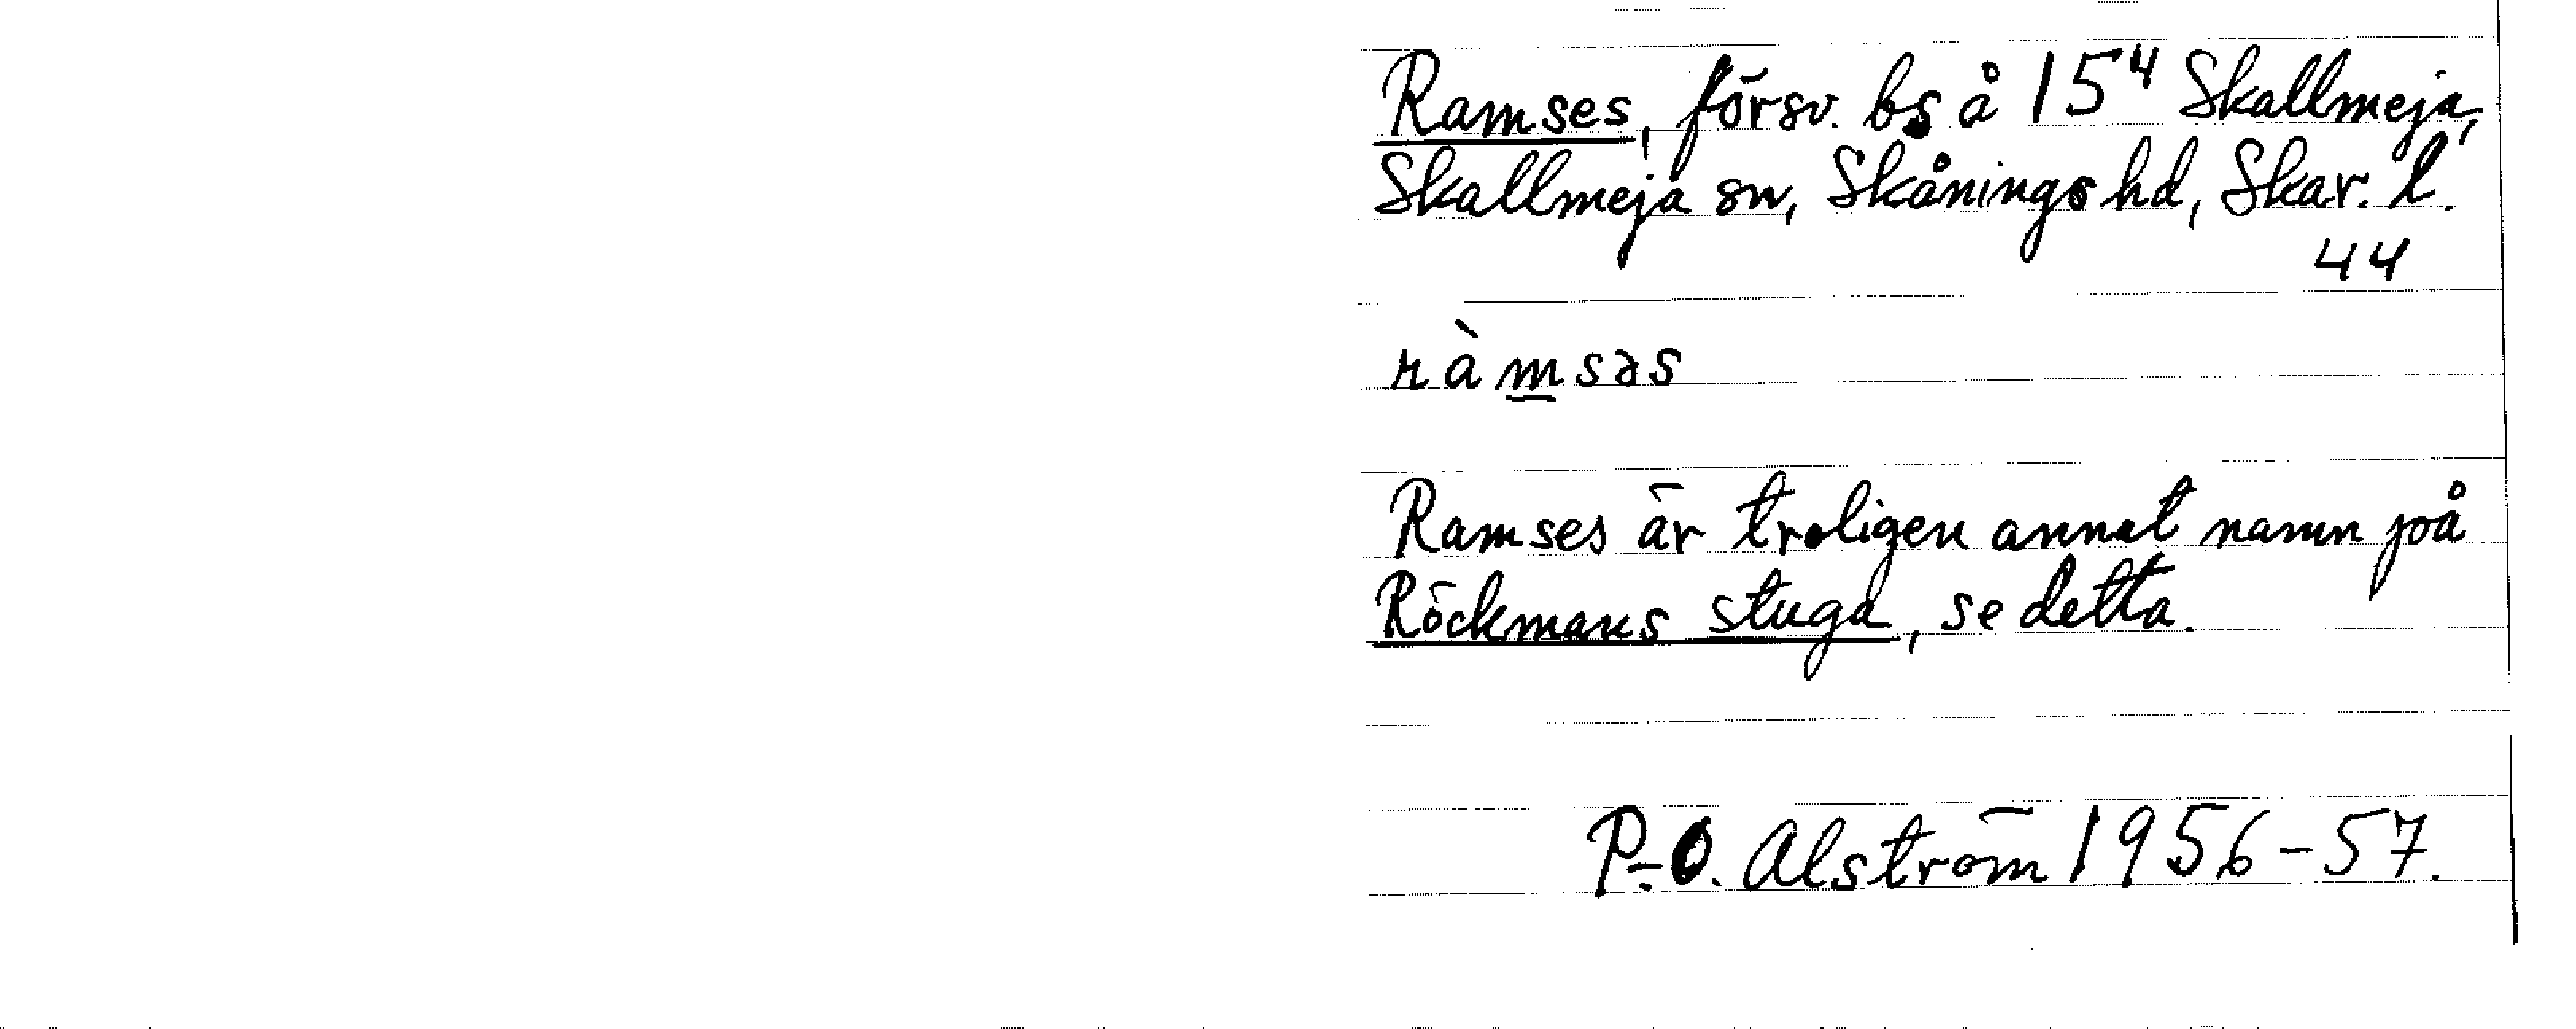 Ramses, försv. bs å 15⁴ Skallmeja,
Skallmeja sn, Skånings hd, Skar. l.
44
ràm̲səs
Ramses är troligen annat namn på
Röckmans stuga, se detta.
P.-O. Alström 1956-57.